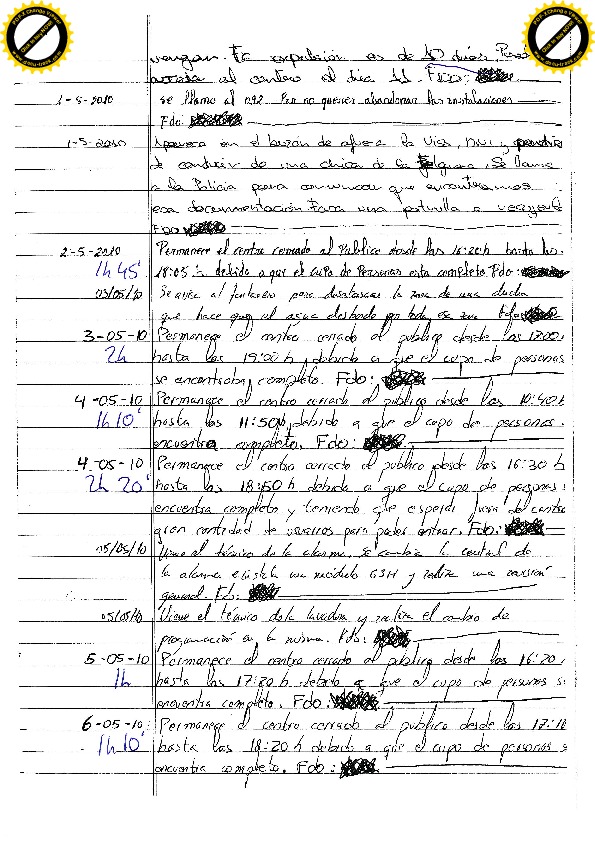 vengan. La expulsión es de 10 días. Podrá
acceder al centro el día 11. Fdo:
1-5-2010 se llamo al 092 Por no querer abandonar las instalaciones
Fdo:
1-5-2010 Aparece en el buzón de afuera la Visa, DNI y
de conducir de una chica de la Felguera, Se llama
a la Policia para comunicar que encontramos
esa documentación. Pasa una patrulla a recogerlo
Fdo
2-5-2010 Permanece el centro cerrado al Publico desde las 16:20h hasta las
1h 45' 18:05 h debido a que el cupo de Personas esta completo. Fdo:
03/05/10 Se avisa al fontanero para desatascar la zona de una ducha
que hace que el agua desborde por toda esa zona Fdo
3-05-10 Permanece el centro cerrado al público desde las 17:00
2h hasta las 19:00 h, debido a que el cupo de personas
se encontraba completo. Fdo:
4-05-10 Permanece el centro cerrado al público desde las 10:40 h
1h 10' hasta las 11:50h, debido a que el cupo de personas
encuentra completo. Fdo:
4-05-10 Permanece el centro cerrado al público desde las 16:30 h
2h 20' hasta las 18:50 h debido a que el cupo de personas
encuentra completo y teniendo que esperar fuera del centro
gran cantidad de usuarios para poder entrar. Fdo:
05/05/10 Viene el técnico de la alarma, se cambia la central de
la alarma e instala un módulo GSM y realiza una revisión
general. Fdo:
05/05/10 Viene el técnico de la lavadora y realiza el cambio de
programación en la misma. Fdo:
5-05-10 Permanece el centro cerrado al público desde las 16:20
1h hasta las 17:20 h debido a que el cupo de personas s
encuentra completo. Fdo:
6-05-10 Permanece el centro cerrado al público desde las 17:10
1h 10' hasta las 18:20 h debido a que el cupo de personas s
encuentra completo. Fdo: